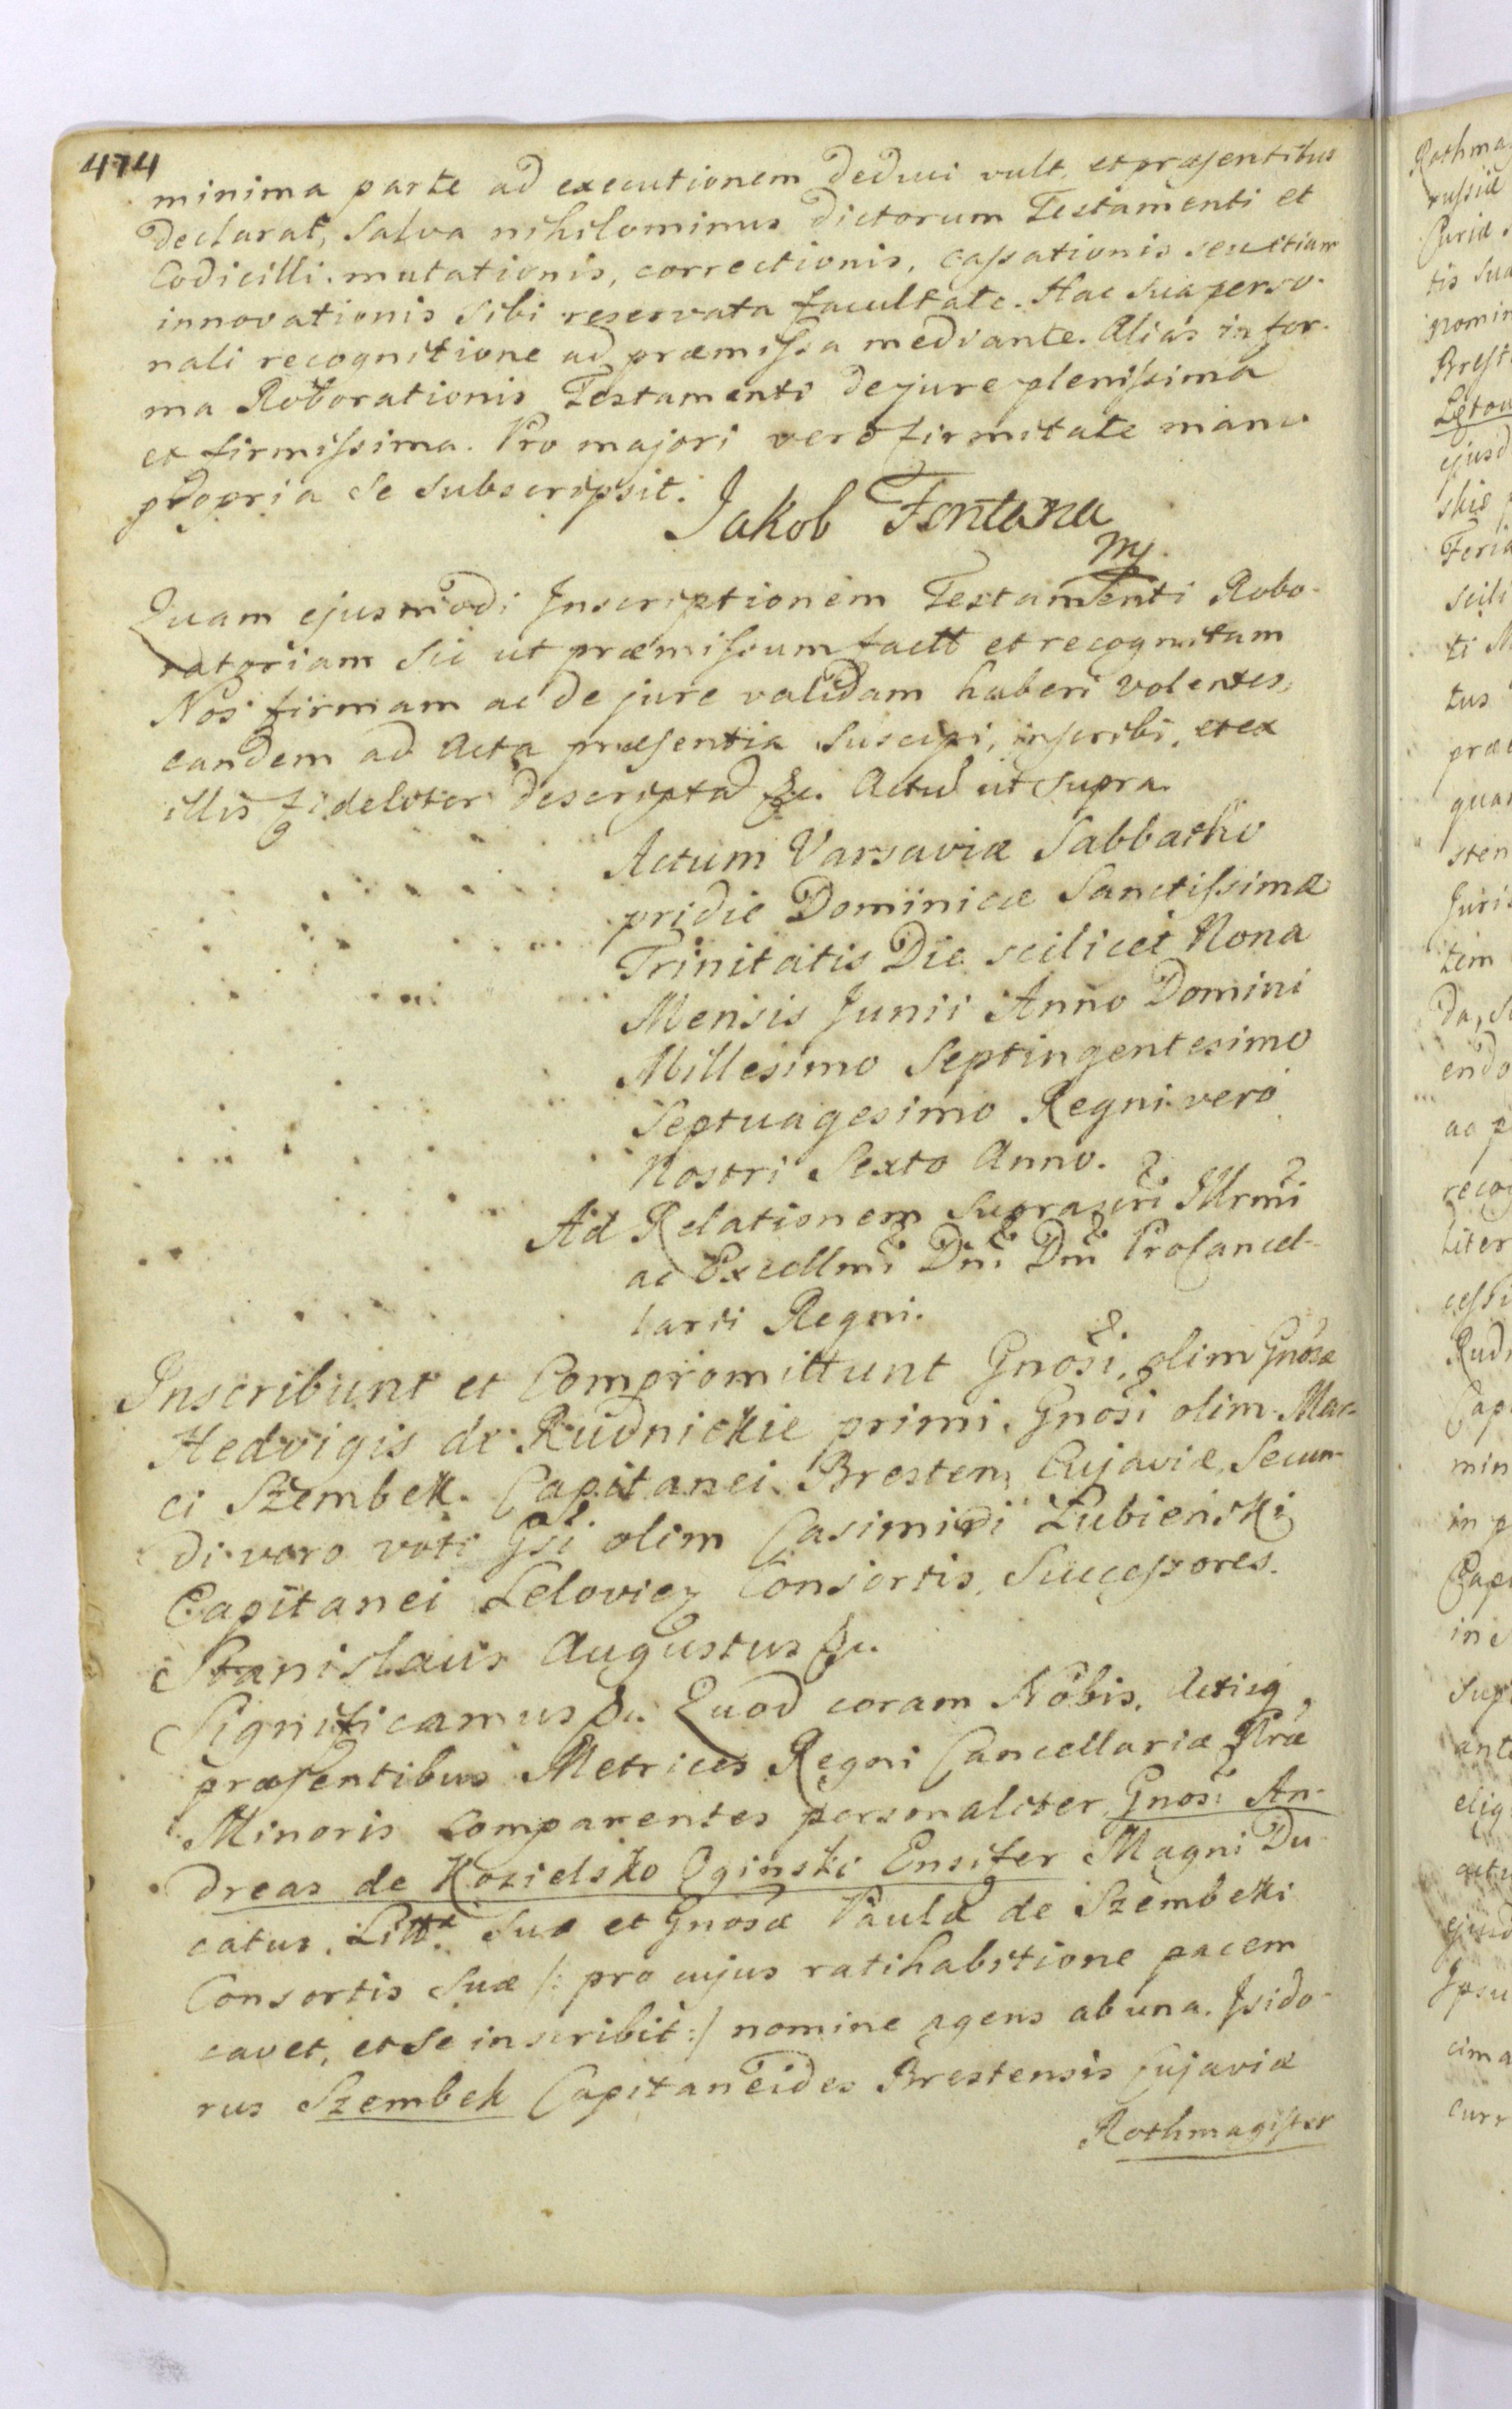 474
minima parte ad executionem deduci vult, et præsentibus
declarat, Salva nihilominus dictorum Testamenti et
Codicilli mutationis, correctionis, cassationis seu etiam
innovationis sibi reservata facultate. Hac sua perso-
nali recognitione ad præmissa mediante. Alias in for-
ma Roborationis Testamenti de jure plenissima
et firmissima. Pro majori vero firmitate manu
propria se subscripsit.
Jakob Fontana
mp
Quam ejusmodi Inscriptionem Testamenti Robo-
ratoriam sic ut præmissum factt et recognitam
Nos firmam ac de jure validam haberi volentes,
eandem ad Acta præsentia suscipi, inscribi, et ex
illis fideliter descripta &c. Actu ut supra.
Actum Varsaviæ Sabbatho
pridie Dominicæ Sanctissimæ
Trinitatis Die scilicet Nona
Mensis Junii Anno Domini
Millesimo Septingentesimo
Septuagesimo Regni vero
Nostri Sexto Anno.
Ad Relationem suprascri Illrmi
ac Excellmi Dni Dni Procancel-
larii Regni.
Inscribunt et Compromittunt Gnosi, olim Gnosæ
Hedvigis de Rudnickie primi, Gnosi olim Mar-
ci Szembek. Capitanei Bresten, Cujaviæ, Secun-
di vero voti Gsi olim Casimiri Łubieński
Capitanei Leloviey Consortis, Successores.
Stanislaus Augustus &c.
Significamus &c. Quod coram Nobis, Actisq
præsentibus Metrices Regni Cancellariæ Nræ
Minoris Comparentes personaliter Gnosi An-
dreas de Kozielsko Oginski Ensifer Magni Du-
catus, Litt. Suo et Gnosæ Paulæ de Szembeki
Consortis Suæ /: pro cujus ratihabitione pacem
cavet, et se inscribit :/ nomine agens ab una. Isido-
rus Szembek Capitaneides Brestensis Cujaviæ
Rothmagister